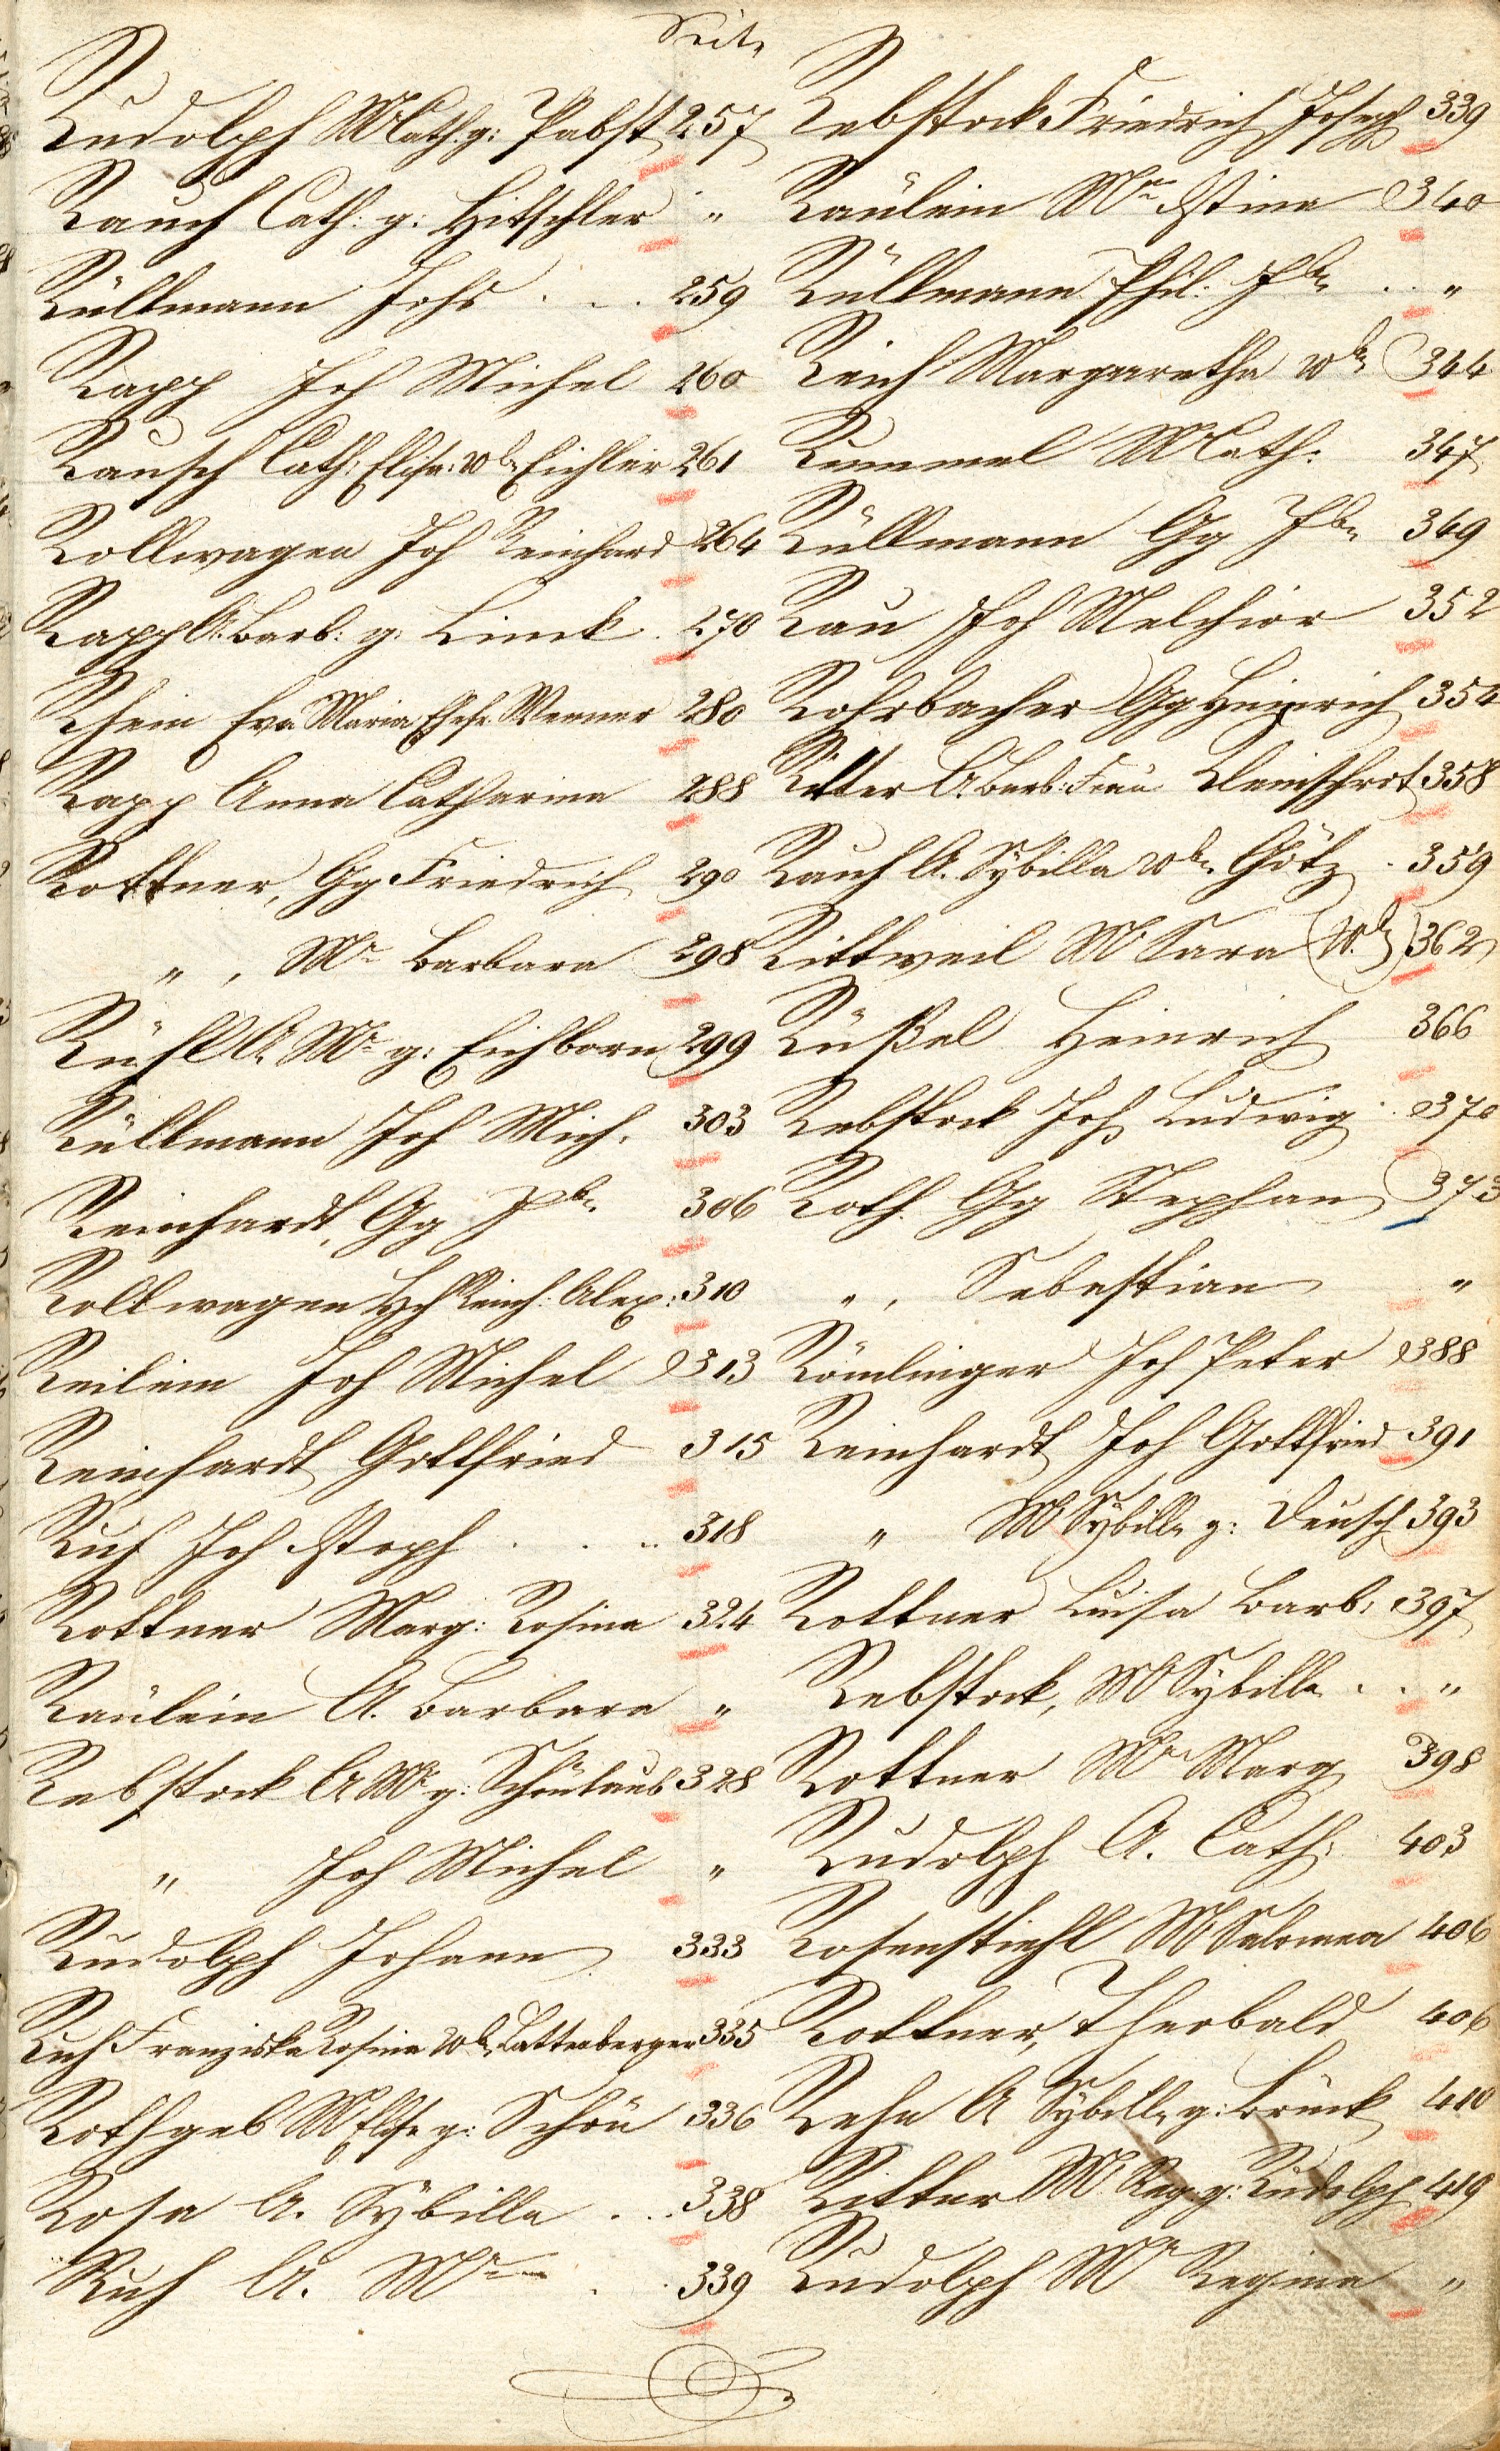 Seite
Rudolph Math. g: Pabst 257
Rauch Cath: g: Hitschler "
Küllmann Johs . . . 259
Rapp Joh Michel 260
Rausch Cath: Elis: Wb. Eichler 261
Rollwagen Joh Reinhard 264
Rapp A. Barb: g: Linck . 270
Rhein Eva Maria Ehefr Werner 280
Rapp Anna Catharina 288
Rottner, Gg Friedrich 290
" , Mª Barbara 298
Rühl A. Mª g: Eichborn 299
Rüllmann Joh Mich. 303
Reinhardt, Gg Jb. 306
Rollwagen Hch Reinh: Alex: 310
Reilein Joh Michel 313
Reinhardt Gottfried 315
Ruf Joh Stoph . . . 318
Rottner Marg: Rosina 324
Räulein A. Barbara "
Rebstock A M g: Schönlaub 328
" Joh Michel "
Rudolph Johann 333
Ruh Franziska Rosina Wb. Lattenberger 335
Rothgeb M Elis g: Schön 336
Rosa A. Sybilla . . . 338
Ruh A. Mª . . 339
Rebstock Friedrich Joseph 339
Räulein Mª Stina 340
Rüllmann Phil: Jb. . . "
Reich Margaretha Wb. 344
Rummel Math: 347
Rüllmann Gg Jb. 349
Rau Joh Melchior 352
Rohrbacher Gg Heinrich 354
Ritter A. Barb: Frau Kleinschrot 358
Rauch A. Sybilla Wb. Götz . 359
Rittweil M Sara (Wb.) 362
Rüßel Heinrich 366
Rebstock Joh Ludwig . 370
Roth Gg Stephan 373
" , Sebastian "
Römlinger Joh Peter 388
Reinhardt Joh Gottfried 391
" M Sybilla g: Deusch 393
Rottner Luisa Barb: 397
Rebstock, M Sybilla . . "
Rottner Mª Marg 398
Rudolph A. Cath: 403
Rosenstiehl M Salomea 406
Rottner, Theobald 406
Rehn A Sybilla g: Brück 410
Ritter M Reg. g: Rudolph 419
Rudolph Mª Regina "